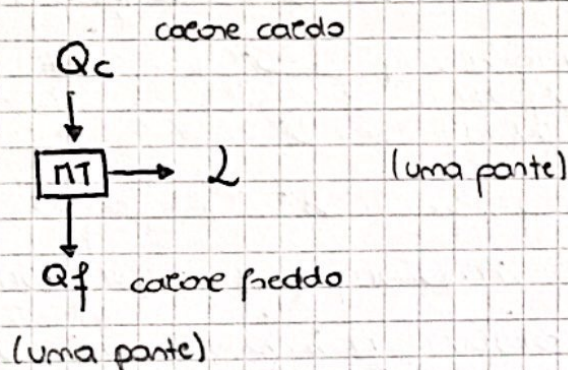 calore caldo
Qc
MT L (una parte)
Qf calore freddo
(una parte)